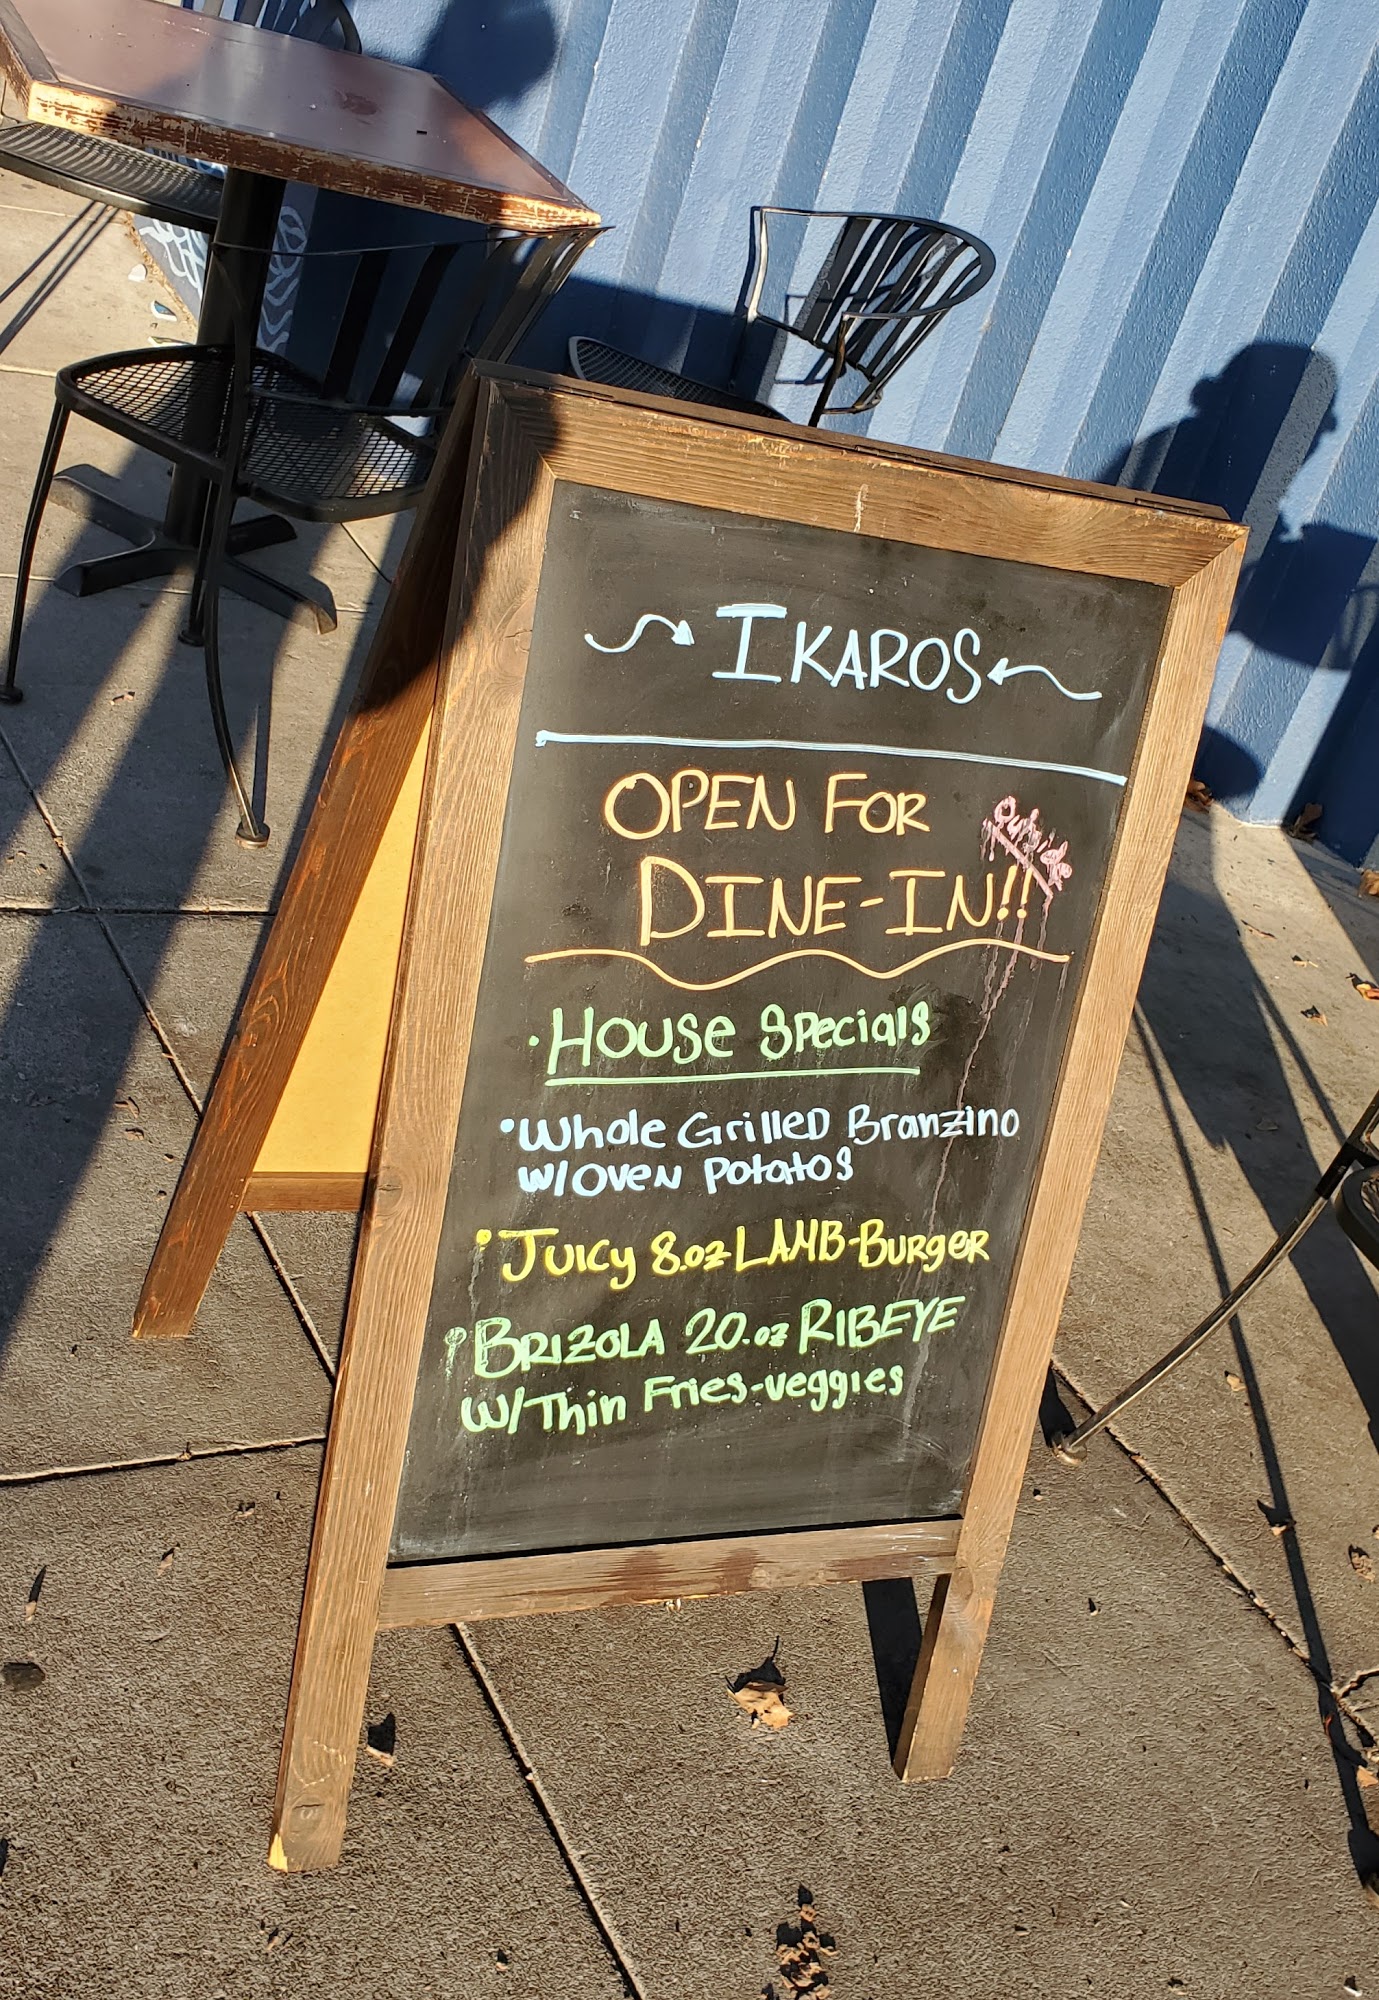 IKAROS
OPEN FOR
DINE-IN!!
Outside
House Specials
Whole Grilled Branzino
W/Oven Potatos
Juicy 8.oz LAMB-Burger
BRIZOLA 20.oz RIBEYE
W/Thin Fries-veggies